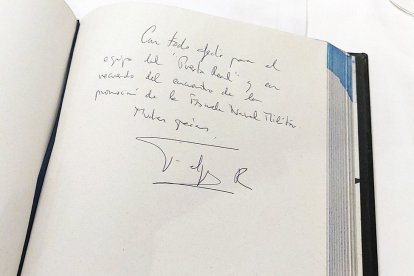 Con todo afecto para el
equipo del "Puerta Real" y en
recuerdo del encuentro de la
promoción de la Escuela Naval Militar.
Muchas gracias.
R